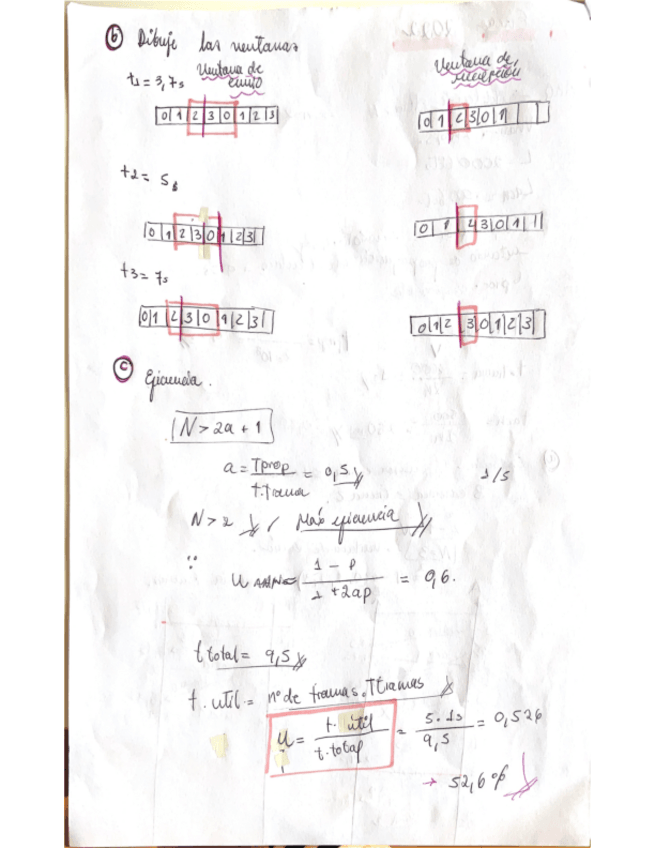 b Dibuje las ventanas
Ventana de envío
Ventana de recepción
t1 = 3,7s
0 1 2 3 0 1 2 3
0 1 2 3 0 1
t2 = 5s
0 1 2 3 0 1 2 3
0 1 2 3 0 1 1
t3 = 7s
0 1 2 3 0 1 2 3
0 1 2 3 0 1 2 3
c Eficiencia.
N > 2a + 1
a = Tprop / t.trama = 0,5
1/5
N > 2 / Más eficiencia
U = 1 - P / 1 + 2ap = 0,6.
t total = 9,5
t. util = nº de tramas. Ttramas
U = t. útil / t. total = 5. 1s / 9,5 = 0,526
→ 52,6%